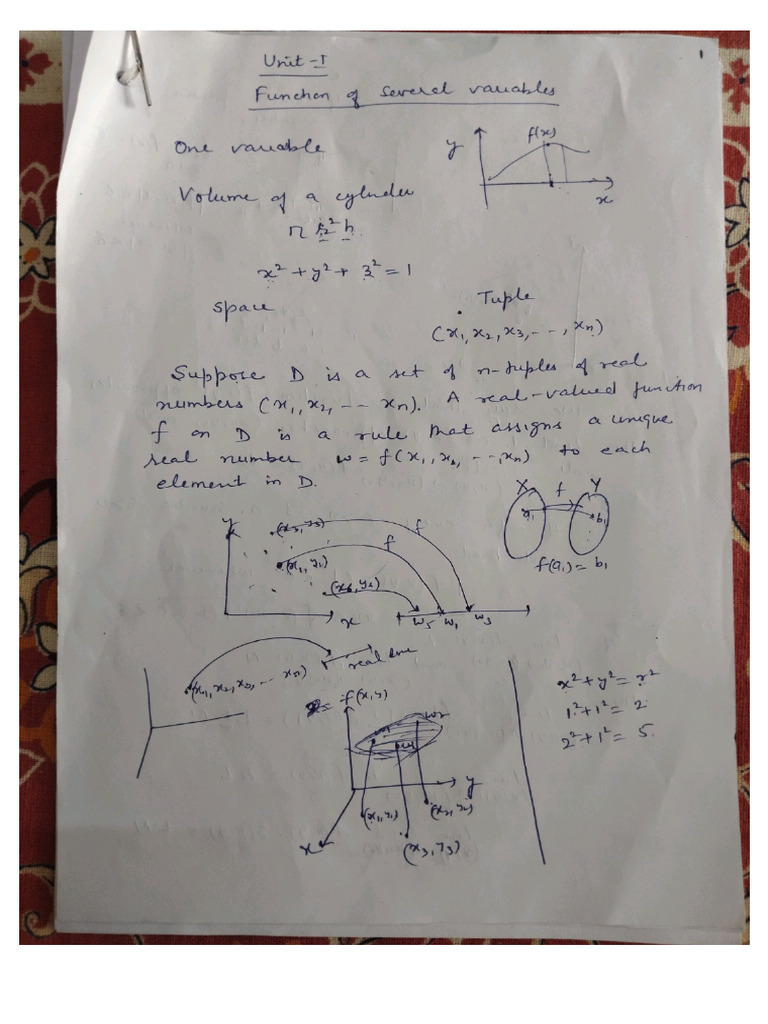 1
Unit-I
Function of several variables
One variable
y
f(x)
x
Volume of a cylinder
π r² h
x² + y² + z² = 1
space
Tuple
(x₁, x₂, x₃, - - , xₙ)
Suppose D is a set of n-tuples of real
numbers (x₁, x₂, -- xₙ). A real-valued function
f on D is a rule that assigns a unique
real number w = f(x₁, x₂, - -, xₙ) to each
element in D.
X f Y
a₁ b₁
f(a₁) = b₁
y
(x₃, y₃) f
(x₁, y₁) f
x
w₅ w₁ w₃
real line
(x₁, x₂, x₃, -- xₙ)
= f(x, y)
w₂
y
(x₁, y₁)
(x₂, y₂)
x
(x₃, y₃)
x² + y² = r²
1² + 1² = 2
2² + 1² = 5